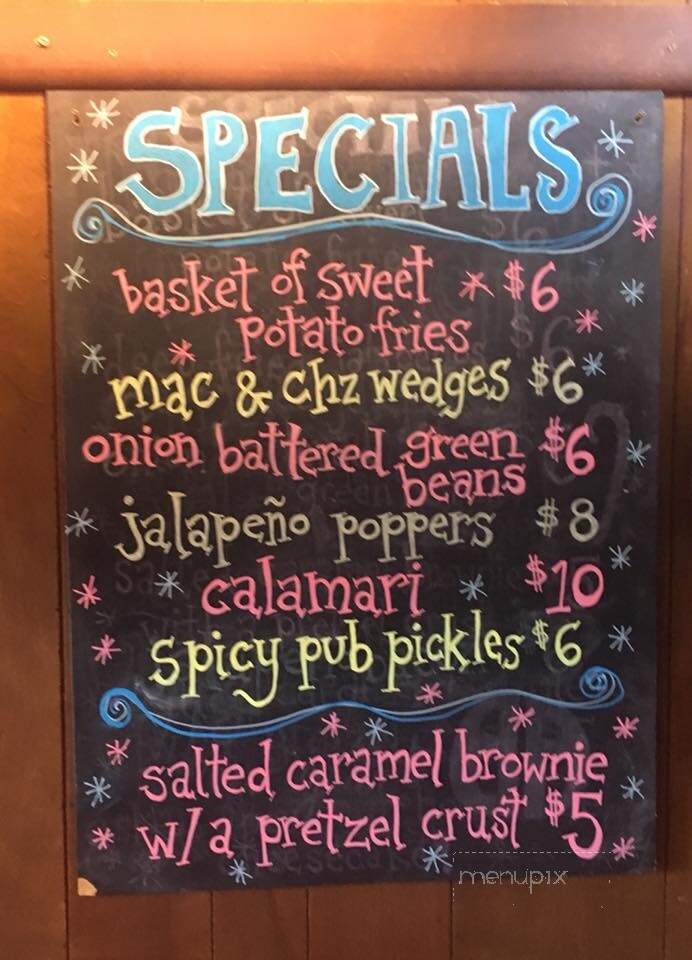 SPECIALS
basket of sweet * $6
potato fries
mac & chz wedges $6
onion battered green $6
beans
jalapeño poppers $8
calamari $10
spicy pub pickles $6
salted caramel brownie
w/ a pretzel crust $5
menupix